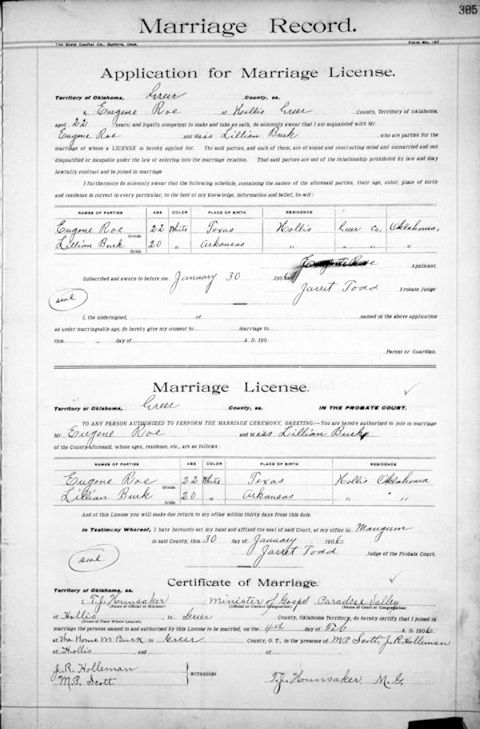 385
Marriage Record.
The State Capital Co., Guthrie, Okla. Form No. 157
Application for Marriage License.
Territory of Oklahoma, Greer County, ss.
I, Eugene Roe of Hollis Greer County, Territory of Oklahoma,
aged 22 years, and legally competent to make and take an oath, do solemnly swear that I am acquainted with Mr.
Eugene Roe and Miss Lillian Burk who are parties for the
marriage of whom a LICENSE is hereby applied for. The said parties, and each of them, are of sound and contracting mind and unmarried and not
disqualified or incapable under the law of entering into the marriage relation. That said parties are not of the relationship prohibited by law and may
lawfully contract and be joined in marriage.
I furthermore do solemnly swear that the following schedule, containing the names of the aforesaid parties, their age, color, place of birth
and residence is correct in every particular, to the best of my knowledge, information and belief, to-wit:
NAMES OF PARTIES AGE COLOR PLACE OF BIRTH RESIDENCE
Eugene Roe Groom 22 White Texas Hollis Greer Co. Oklahoma,
Lillian Burk Bride 20 " Arkansas " " " "
Applicant.
Subscribed and sworn to before me January 30 1906
Jarret Todd Probate Judge
seal
I, the undersigned, of named in the above application
as under marriageable age, do hereby give my consent to marriage to
this day of A. D. 190
Parent or Guardian.
Marriage License.
Territory of Oklahoma, Greer County, ss. IN THE PROBATE COURT.
TO ANY PERSON AUTHORIZED TO PERFORM THE MARRIAGE CEREMONY, GREETING:—You are hereby authorized to join in marriage
Mr. Eugene Roe and Miss Lillian Burk
of the County aforesaid, whose ages, residence, etc., are as follows:
NAMES OF PARTIES AGE COLOR PLACE OF BIRTH RESIDENCE
Eugene Roe Groom 22 White Texas Hollis Oklahoma
Lillian Burk Bride 20 " Arkansas " " "
And of this License you will make due return to my office within thirty days from this date.
In Testimony Whereof, I have hereunto set my hand and affixed the seal of said Court, at my office in Mangum
in said County, this 30 day of January 1906
Jarret Todd Judge of the Probate Court.
seal
Certificate of Marriage.
Territory of Oklahoma, ss.
I, T.J. Hounsaker Minister of Gospel Paradise Valley
(Name of Official or Minister) (Official or Contract Designation) (Name of Court or Congregation)
of Hollis in Greer County, Oklahoma Territory, do hereby certify that I joined in
(Name of Place Where Located)
marriage the persons named in and authorized by this License to be married, on the 4th day of Feb A. D. 1906
at the Home M Burk in Greer County, O. T., in the presence of M.P. Scott, J.R. Holleman
of Hollis and of
J.R. Holleman
M.P. Scott WITNESSES T.J. Hounsaker M.G.